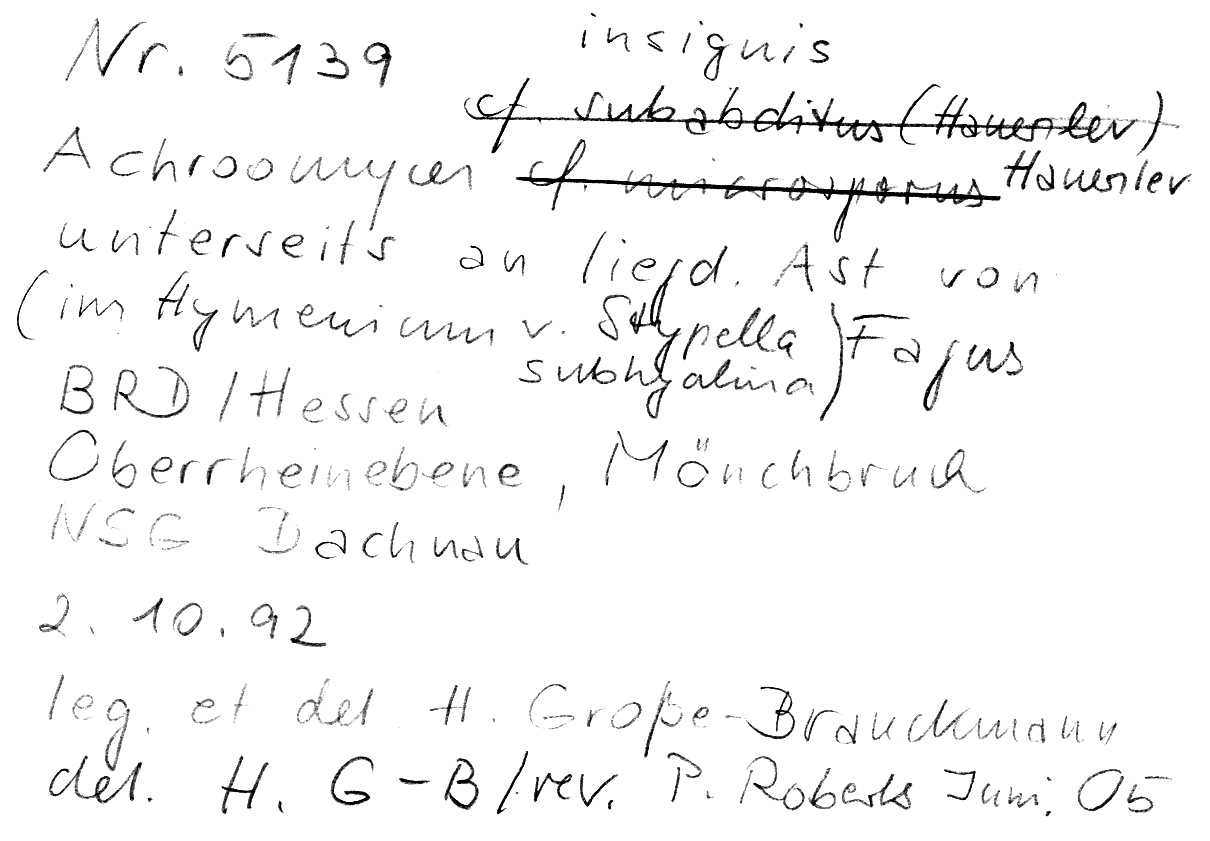 Nr. 5139 insignis
cf. subabditus (Hauerslev)
Achroomyces cf. microsporus Hauerslev
unterseits an liegd. Ast von
(im Hymenium v. Stypella subhyalina) Fagus
BRD / Hessen
Oberrheinebene, Mönchbruch
NSG Dachnau
2. 10. 92
leg. et det H. Große-Brauckmann
det. H. G-B / rev. P. Roberts Juni. 05